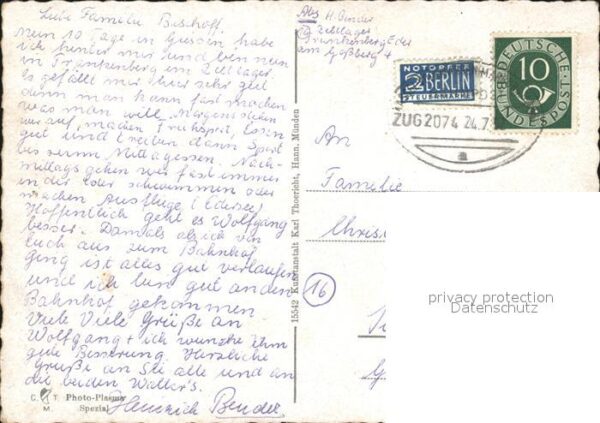 Liebe Familie Bischoff.
Mein 10 Tage in Giessen habe
ich hinter mir und bin nun
in Frankenberg im Zeltlager.
Es gefällt mir hier sehr gut
denn man kann fast machen
was man will. Morgens stehen
wir auf, machen Frühsport, Essen
gut und treiben dann Sport
bis zum Mittagessen. Nach-
mittags gehen wir fast immer
in der Eder schwimmen oder
machen Ausflüge (Edersee)
Hoffentlich geht es Wolfgang
besser. Damals als ich von
Euch aus zum Bahnhof
ging ist alles gut verlaufen
und ich bin gut an dem
Bahnhof gekommen.
Viele Viele Grüße an
Wolfgang + ich wünsche ihm
gute Besserung. Herzliche
Grüße an Sie alle und an
die beiden Walter's.
Heinrich Bender
C. T. Photo-Plasma
M. Spezial
15542 Kunstanstalt Karl Thoericht, Hann. Münden
Abs H. Bender
Zeltlager
Frankenberg Eder
am Goßberg 4
NOTOPFER
2 BERLIN
STEUERMARKE
DEUTSCHE
BUNDESPOST
10
ZUG 2074 24.7.
a
An
Familie
Chris
16
privacy protection
Datenschutz